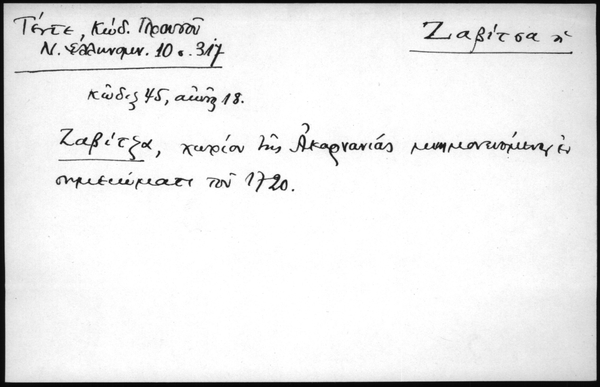 Γέντε, Κώδ. Προυσοῦ
Ν. Ἑλληνομν. 10 σ. 317
Ζαβίτσα ἡ
Κῶδιξ 45, αἰών 18.
Ζαβίτζα, χωρίον τῆς Ἀκαρνανίας μνημονευόμενον ἐν
σημειώματι τοῦ 1720.